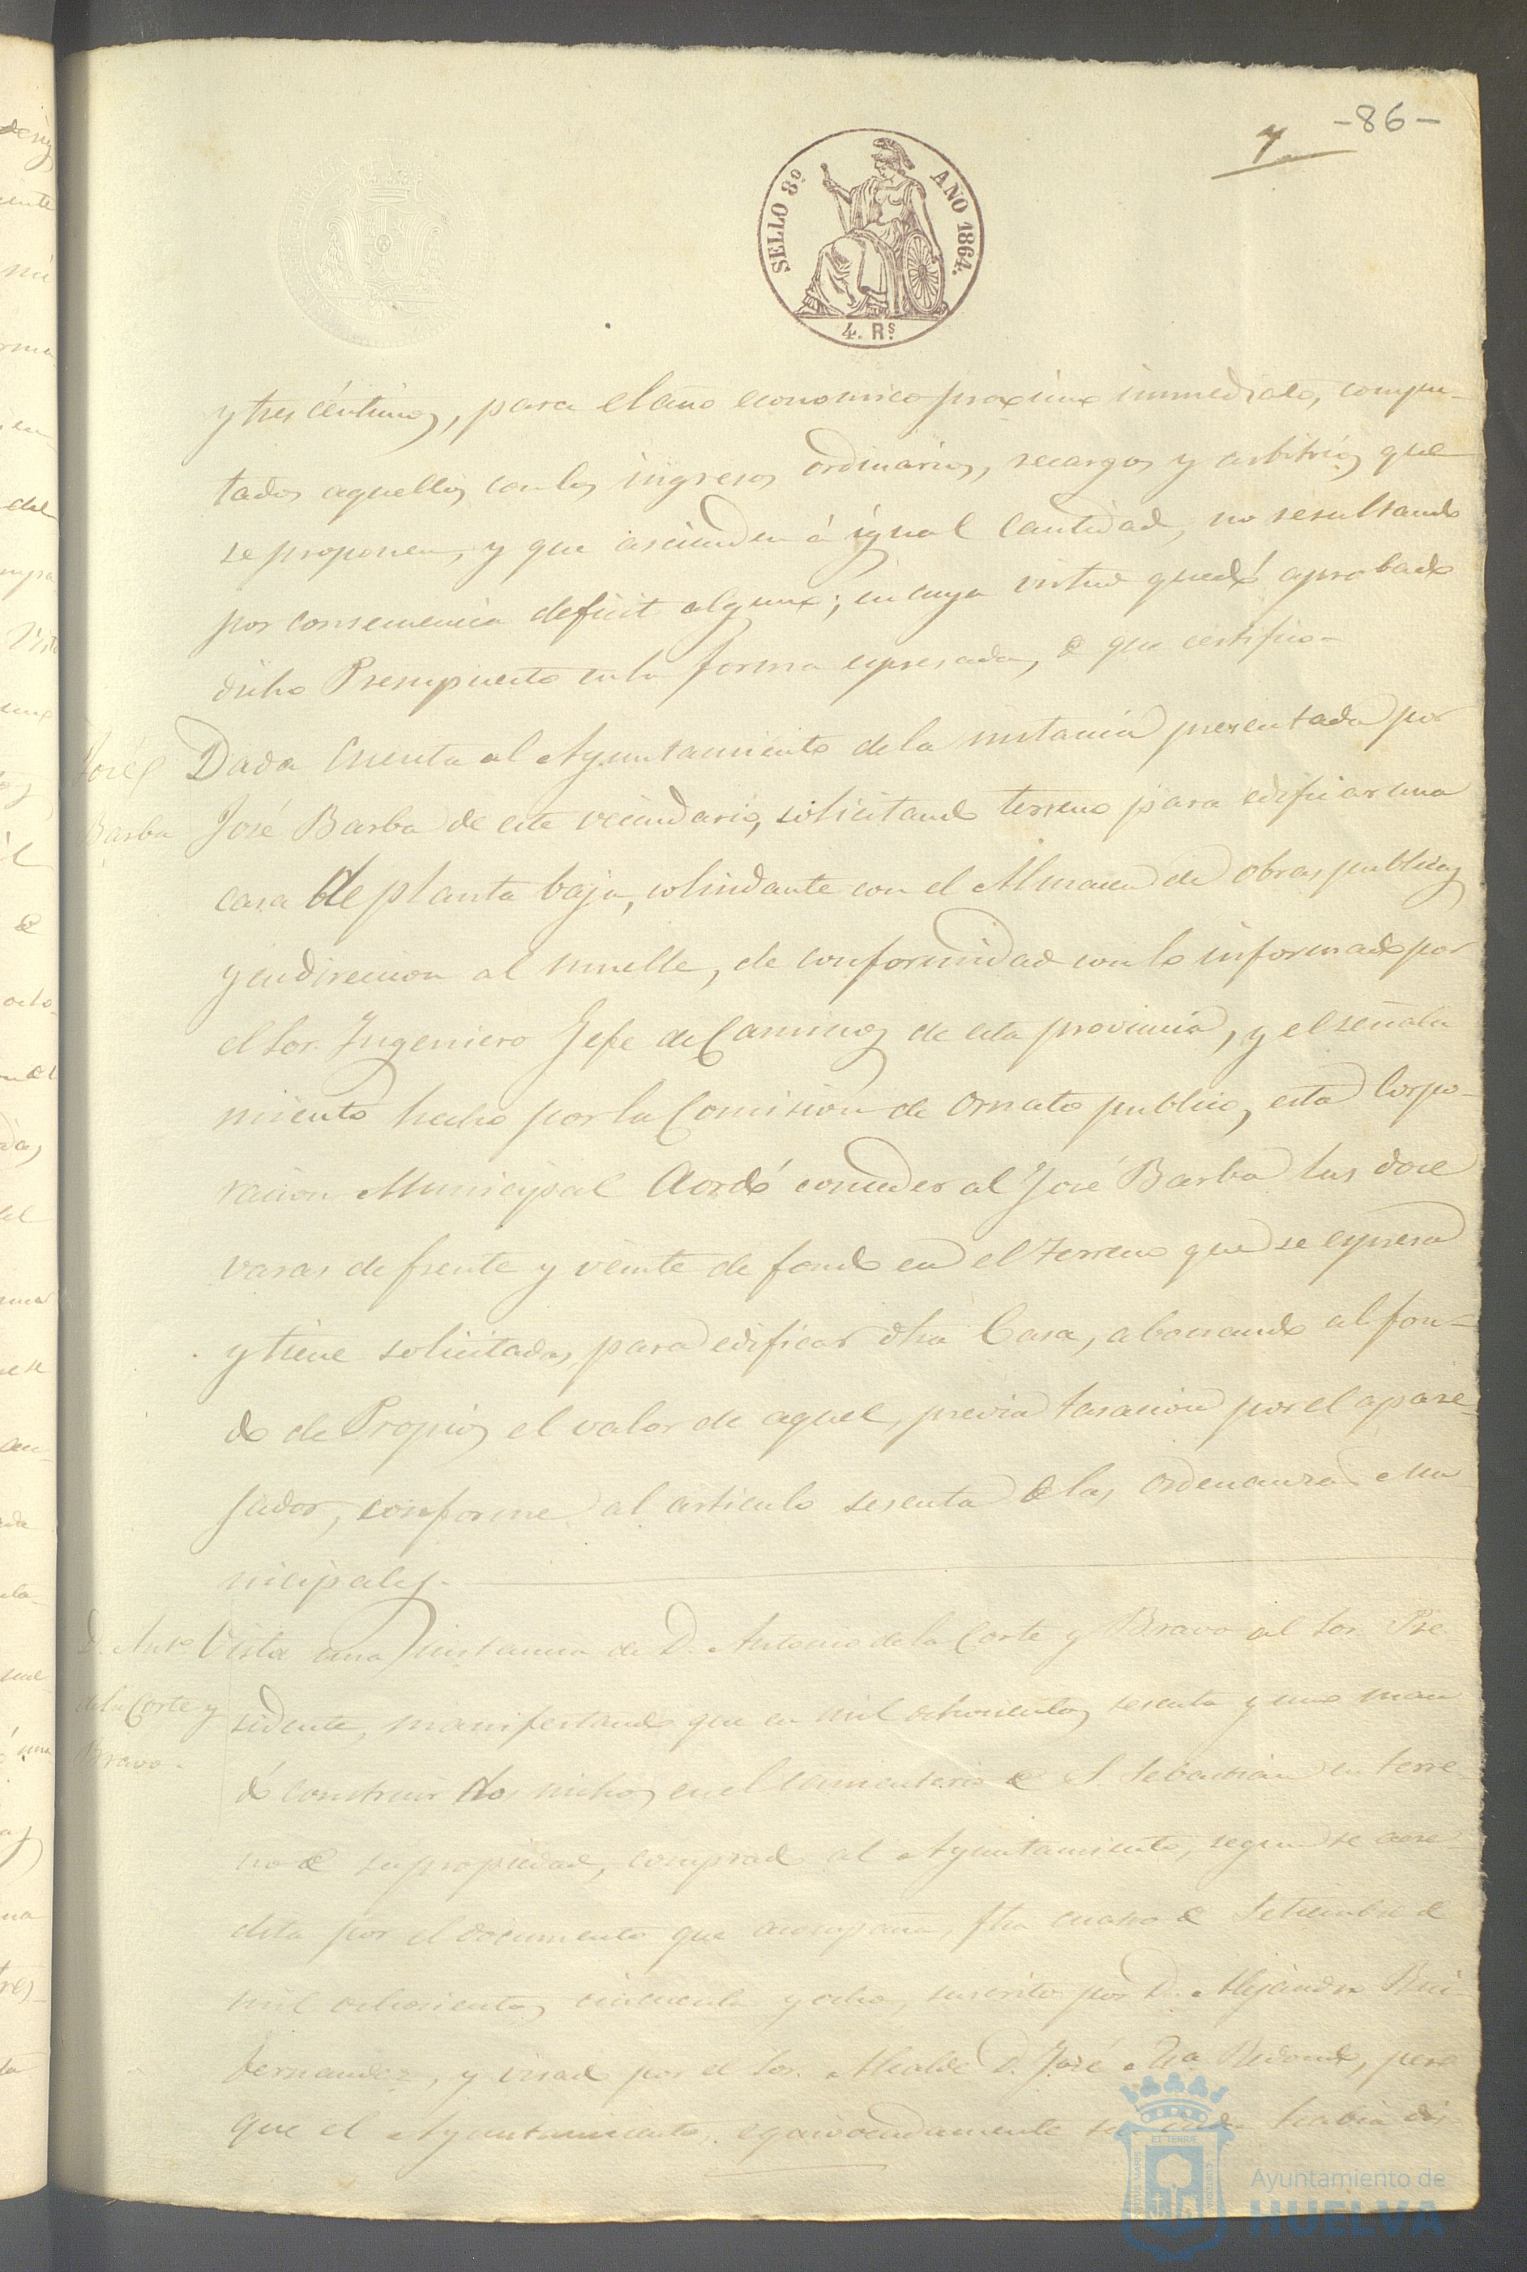 -86-
7
SELLO 8º AÑO 1864.
4. Rs
y tres céntimos, para el año economico proximo immediato, compu-
tados aquellos con los ingresos ordinarios, recargos y arbitrios que
se proponen, y que ascienden á ígual Cantidad, no resultando
por consecuencia deficit alguno; en cuya virtud quedó aprobado
dicho Presupuesto en la forma expresada, de que certifico-
José
Barba
Dada Cuenta al Ayuntamiento de la instancia presentada por
José Barba de este vecindario, solicitando terreno para edificar una
casa de planta baja, colindante con el Almacen de obras publicas
y en direccion al muelle, de conformidad con lo informado por
el Sor. Ingeniero Jefe de Caminos de esta provincia, y el señala
miento hecho por la Comision de Ornato publico, esta Corpo-
racion Municipal Acordó conceder al José Barba las doce
varas de frente y veinte de fondo en el terreno que se expresa
y tiene solicitadas para edificar dha Casa, abonando al fon-
do de Propios el valor de aquel, previa tasacion por el apare-
jador, conforme al articulo sesenta de las ordenanzas Mu
nicipales.-
D. Anto
de la Corte y
Bravo-
Vista una instancia de D. Antonio de la Corte y Bravo al Sor. Pre
sidente, manifestando que en mil ochocientos sesenta y uno man
dó construir dos nichos en el Cementerio de S. Sebastian en terre
no de su propiedad, comprado al Ayuntamiento, segun se acre
dita por el documento que acompaña, fha cuatro de Setiembre de
mil ochocientos cincuenta y ocho, suscrito por D. Alejandro Rui
Fernandez, y visado por el Sor. Alcalde D. José Ma Redondo, pero
que el Ayuntamiento, equivocadamente sin habia dis
ET TERRE
Ayuntamiento de
HUELVA